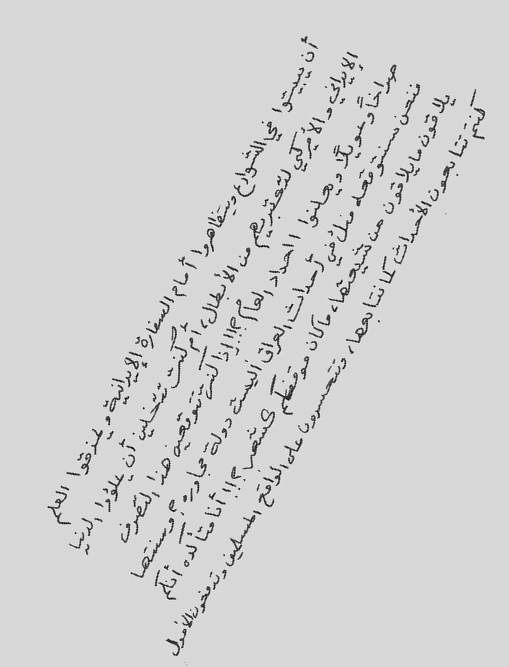 أن يبيتوا في الشوارع ويتظاهروا أمام السفارة الإيرانية ويمزقوا العلم
الإيراني والأمريكي لتعتبريهم من الأبطال، أم كنت تتخيلين أن يملؤوا الدنيا
صراخاً وعويلاً ويعلنوا الحداد العام؟!! إذا كنت تتوقعين هذا التصرف
فنحن سنتوقعه منك في أحداث العراق أليست دولة مجاورة؟ وسنتها
يلاقون ما يلاقون من شيعتها، ما كان موقفكم كسنتها؟!! أنا متأكدة أنكم
كنتم تتابعون الأحداث كما نتابعها، وتتحسرون على الواقع المسلمين وتدفعون الأموال